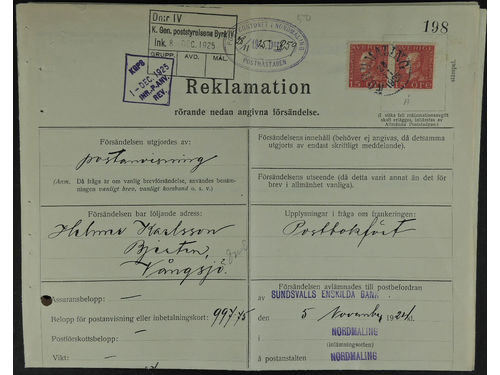 50
198
D:nr IV
K. Gen. poststyrelsens Byrå IV
Ink. 8 DEC. 1925
GRUPP. AVD. MÅL.
POSTKONTORET I NORDMALING
POSTMÄSTAREN
KGPS
1 - DEC. 1925
INR. P. ANV.
REV.
SVERIGE
15 ÖRE
Reklamation
rörande nedan angivna försändelse.
stämpel.
Försändelsen utgjordes av:
postanvisning
(Anm. Då fråga är om vanlig brevförsändelse, användes benämningen vanligt brev, vanligt korsband o. s. v.)
Försändelsens innehåll (behöver ej angivas, då detsamma
utgjorts av endast skriftligt meddelande).
Försändelsens utseende (då detta varit annat än det för
brev i allmänhet vanliga).
Försändelsen bar följande adress:
Helmer Karlsson
Vångsjö
Upplysningar i fråga om frankeringen:
Postbokfört
Assuransbelopp: —
Belopp för postanvisning eller inbetalningskort: 997,75
Postförskottsbelopp: —
Vikt: —
Försändelsen avlämnades till postbefordran
av SUNDSVALLS ENSKILDA BANK
den 5 November 192
NORDMALING
(inlämningsorten)
å postanstalten NORDMALING